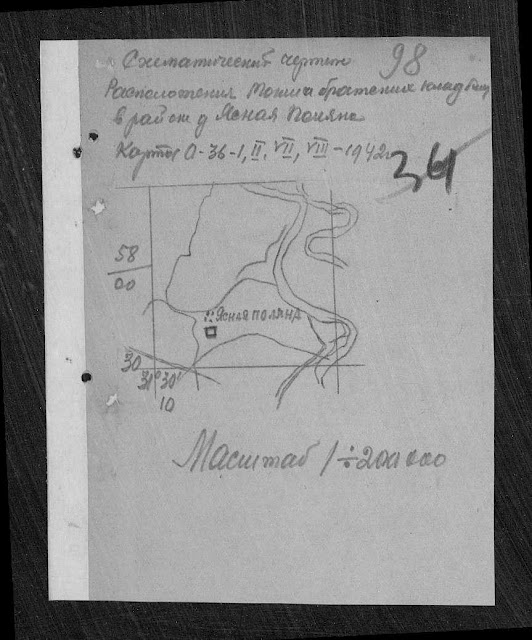 Схематический чертеж
98
Расположения Могил братских кладбищ
в районе д Ясная Поляна
Карта О-36-1, II, VII, VIII-1942г
361
58
00
Ясная поляна
30
31° 30'
10
Масштаб 1÷200000